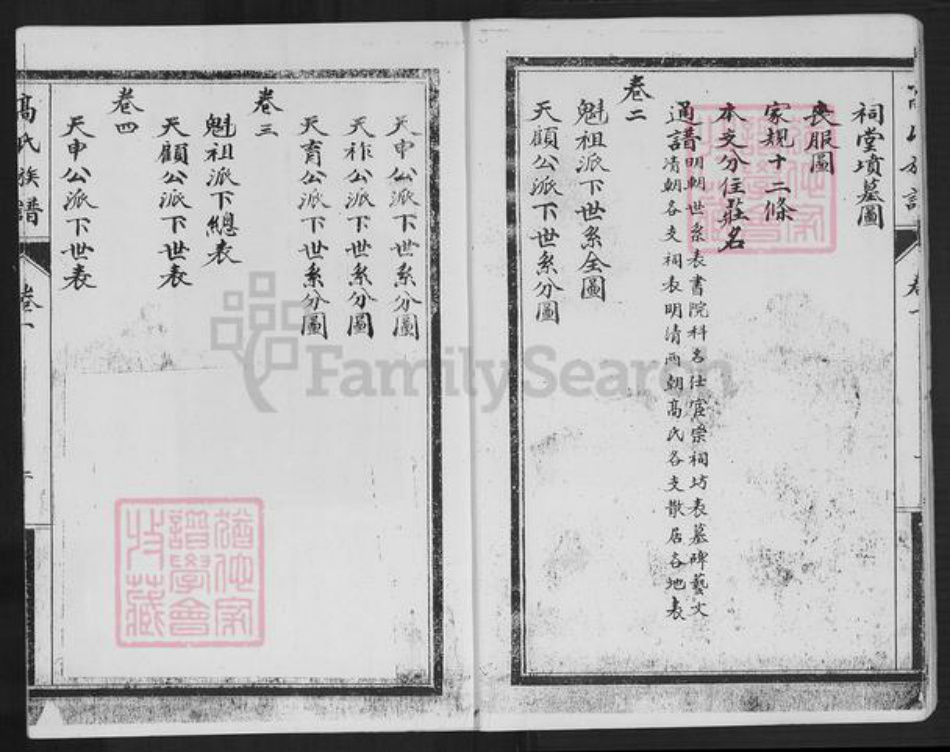 祠堂墳墓圖
喪服圖
家規十二條
本支分住莊名
通譜明朝世系表書院科名仕宦崇祠坊表墓碑藝文
清朝各支祠表明清兩朝高氏各支散居各地表
卷二
魁祖派下世系全圖
天願公派下世系分圖
天申公派下世系分圖
天祚公派下世系分圖
天育公派下世系分圖
卷三
魁祖派下總表
天願公派下世表
卷四
天申公派下世表
高氏族譜
卷一
二
FamilySearch
譜學會
收藏